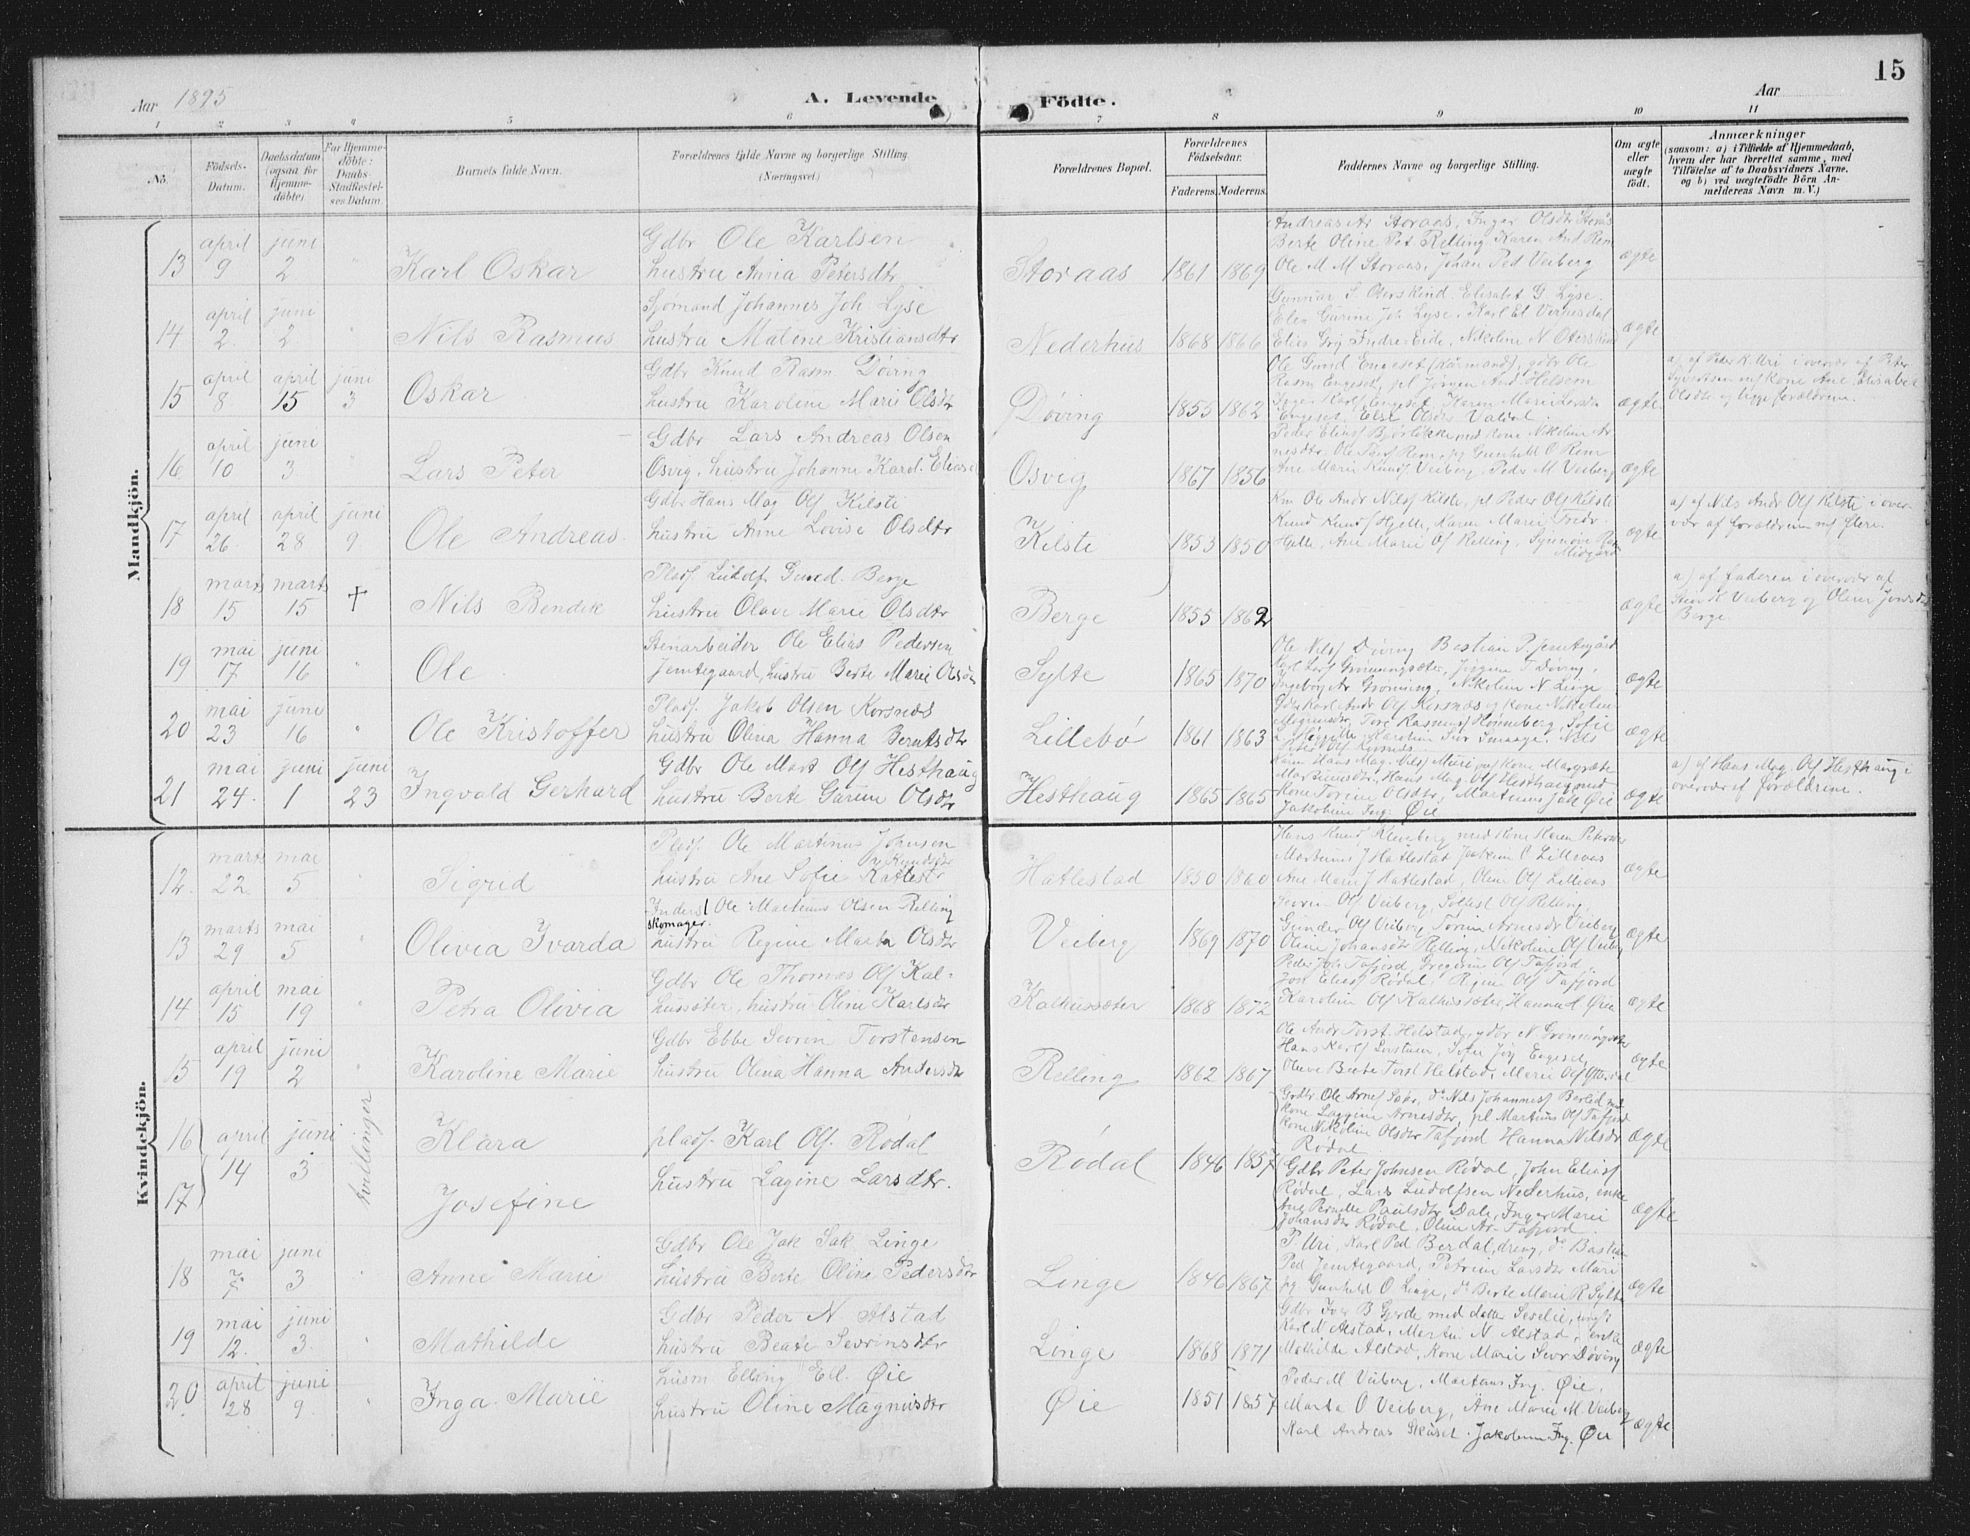 15
Aar 1895
A. Levende Födte.
Aar
1 2 3 4 5 6 7 8 9 10 11
No.
Födsels-Datum.
Daabsdatum (ogsaa for Hjemme-döbte).
For Hjemme-döbte: Daabs-Stadfæstel-ses Datum.
Barnets fulde Navn.
Forældrenes fulde Navne og borgerlige Stilling.
(Næringsvei.)
Forældrenes Bopæl.
Forældrenes Födselsaar.
Faderens. Moderens.
Faddernes Navne og borgerlige Stilling.
Om ægte eller uægte födt.
Anmærkninger
(saasom: a) i Tilfælde af Hjemmedaab, hvem der har forrettet samme, med Tilföielse af to Daabsvidners Navne. og b) ved uægtefödte Börn An-melderens Navn m. V.)
Mandkjön.
13 april 9 juni 2 " Karl Oskar
Gdbr Ole Karlsen
hustru Anna Petersdtr
Storaas 1861 1869
Andreas Ar Storaas, Inger Olsdtr Storås
Berte Oline Ped Relling Karen And Rem
Ole M M Storaas, Johan Ped Veiberg
ægte
14 april 2 juni 2 " Nils Rasmus
Sjømand Johannes Joh Lyse
hustru Maline Kristiansdtr
Nederhus 1868 1866
Gunnar S Oterskind Elisabet G Lyse
Elen Gurine Joh Lyse, Karl El
Elias Indre-Eide, Nikoline N Oterskind
ægte
15 april 8 april 15 juni 3 Oskar
Gdbr Knud Rasm Døving
hustru Karoline Marie Olsdtr
Døving 1855 1862
Ole Gund Engeset gdbr Ole
Rasm Engeset, pl Jørgen And Helsem
Engeset, Karen Marie
Engeset, Else Olsdtr Valdal
ægte
a) af Peder K Uri i overvær af Peter
Syvertsen m/ kone Ane Elisabet
Olsdtr og begge forældrene.
16 april 10 juni 3 " Lars Peter
Gdbr Lars Andreas Olsen
Osvig, hustru Johanne Karol. Elias
Osvig 1867 1856
Peder Eliass Bjørlykke med Kone Nikoline Ar
nesdtr, Ole Rem, pg Gunhild O Rem
Ane Marie Knuds Veiberg, Peder M Veiberg
ægte
17 april 26 april 28 juni 9 Ole Andreas
Gdbr Hans Mag Ols Kilsti
hustru Anne Lovise Olsdtr
Kilsti 1853 1850
Km Ole Andr Nils Kilsti, pl Peder Ols Kilsti
Knud Knuds Hjelle, Karen Marie Fredr
Hjelle, Ane Marie Ols Relling, Synnøve
Midgård
ægte
a) af Nils Andr Ols Kilsti i over-
vær af forældrene m/ flere.
18 marts 15 marts 15 † Nils Bendik
Plads. Ludolf Gund. Berge
hustru Olave Marie Olsdtr
Berge 1855 1862
ægte
a) af faderen i overvær af
K Veiberg og Oline Jonsdtr
Berge
19 mai 17 juni 16 " Ole
Stenarbeider Ole Elias Pedersen
Jemtegaard, hustru Berte Marie Olsdtr
Sylte 1865 1870
Ole Nilss Døving Bastian P. Jemtegård
Karl Lars Grønningsæter, Jørgine T Døving,
Ingeborg Ar Grønning, Nikoline N Linge
ægte
20 mai 23 juni 16 " Ole Kristoffer
Plads. Jakob Olsen Korsnæs
hustru Olina Hanna Berntsdtr
Lillebø 1861 1863
Gdbr Karl Andr Ols Korsnæs og kone Nikoline
Mogensdtr, Tore Rasmuss Hønneberg, Sofie
Karoline Siv Smaage, Nils
Peter Ols Korsnæs
ægte
21 mai 24 juni 1 juni 23 Ingvald Gerhard
Gdbr Ole Mart Ols Hesthaug
hustru Berte Gurine Olsdtr
Hesthaug 1865 1865
Hans Mag Nilss Muri og kone Margrete
Martinusdtr, Hans Mag Ols Hesthaug med
kone Torine Olsdtr, Martinus Jak Øie
Jakobine Ing. Øie
ægte
a) af Hans Mag Ols Hesthaug i
overvær af forældrene.
Kvindekjön.
12 marts 22 mai 5 " Sigrid
Plads. Ole Martinus Johnsen
hustru Ane Sofie Knudsdtr
Hatlestad 1850 1860
Hans Knuds Kleveberg med kone Karen Petersdtr
Martinus J Hatlestad Joakim C Lillevas
Ane Marie J Hatlestad, Oline Ols Lillevas
ægte
13 marts 29 mai 5 " Olivia Ivarda
Inders. Ole Martinus Olsen Relling
skomager.
hustru Regine Marta Olsdtr
Veiberg 1869 1870
Iver Ols Veiberg, Ols Relling,
Gunder Ols Veiberg Torine Arnesdtr Veiberg
Oline Johansdtr Relling, Nikoline Ols Veiberg
ægte
14 april 15 mai 19 " Petra Olivia
Gdbr Ole Thomas Ols Kal=
hussæter, hustru Oline Karlsdtr
Kalhussæter 1868 1872
Peder Joh Tafjord, Gregorius Ols Tafjord
Jon Eliass Rødal, Ols Tafjord
Karoline Ols Kalhussæter, Hanna A Øie
ægte
15 april 19 juni 2 " Karoline Marie
Gdbr Ebbe Sevrin Torstensen
hustru Olina Hanna Andersdtr
Relling 1862 1867
Ole Andr Torst Helstad, gdbr N Grønningsæter
Hans Karls, Engeset
Olave Berte Torst Helstad, Marie Ols Ytterdal
ægte
16 april 14 juni 3 tvillinger Klara
plads. Karl Ols. Rødal
17 Josefine
hustru Lagine Larsdtr.
Rødal 1846 1857
Grdbr Ole Arnes do Nils Johanness Berlid m
kone Laggine Arnesdtr, pl Martinus Ols Tafjord
kone Nikoline Olsdtr Tafjord Hanna Nilsdtr
Rødal
ægte
Gdbr Peter Johnsen Rødal, John Eliass
Rødal, Lars Ludolfsen Nederhus, enke
Ane Pernille Paulsdtr Dale, Inger Marie
Johansdtr Rødal, Oline Ar Tafjord
ægte
18 mai 7 juni 3 " Anne Marie
Gdbr Ole Jak Sak Linge
hustru Berte Oline Pedersdtr
Linge 1846 1867
P. Uri, Karl Ped Berdal, dreng, do Bastian
Ped Jemtegaard, Petrine Larsdtr Muri
pg Gunhild O Linge, do Berte Marie R Sylte
ægte
19 mai 12 juni 3 " Mathilde
Gdbr Peder N Alstad
hustru Beate Sevrinsdtr
Linge 1868 1871
Gdbr Iver B Gjerde med datter Seselie, ungk
Karl N Alstad, Martin N Alstad, enke
Mathilde Alstad, kone Marie Sevr Døving
ægte
20 april 28 juni 9 " Inga Marie
husm Elling Ell. Øie
hustru Oline Magnusdtr
Øie 1851 1857
Peder M Veiberg, Martinus Ing. Øie,
Marta O Veiberg, Ane Marie M. Veiberg
Karl Andreas Skåset. Jakobine Ing. Øie
ægte